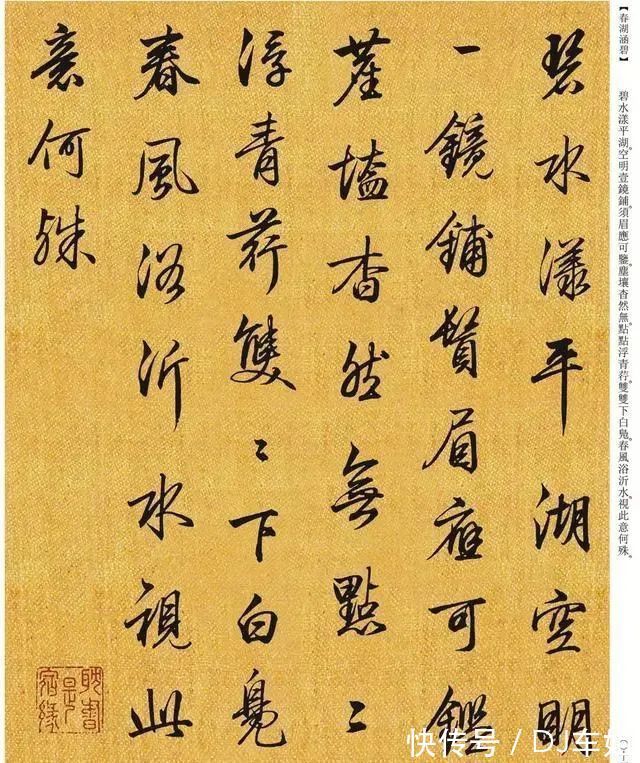 【春湖涵碧】 碧水漾平湖。空明壹鏡鋪。須眉應可鑒。塵壤杳然無。點點浮青荇。雙雙下白鳧。春風浴沂水。視此意何殊。
碧水漾平湖空明
一鏡鋪鬚眉應可鑑
塵壒杳然無點〻
浮青荇雙〻下白鳧
春風浴沂水視此
意何殊
耽書是宿緣
快传号 / DJ车